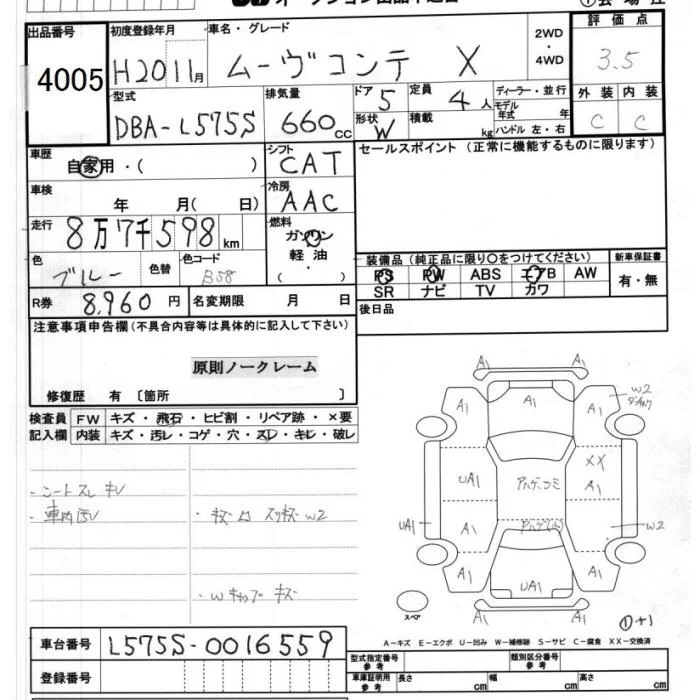 出品番号
4005
初度登録年月
H20 11月
車名・グレード
ムーヴコンテ X
2WD
・
4WD
評価点
3.5
外装 内装
C C
型式
DBA-L575S
排気量
660cc
ドア
5
形状
W
定員
4人
積載
kg
ディーラー・並行
モデル
年式 年
ハンドル 左・右
車歴
自家用・( )
シフト
CAT
セールスポイント(正常に機能するものに限ります)
車検
年 月( 日)
冷房
AAC
走行
8万7千598km
燃料
ガソリン
軽油
( )
色
ブルー
色替
色コード
B58
装備品(純正品に限り○をつけてください)
PS PW ABS エアB AW
SR ナビ TV カワ
新車保証書
有・無
R券
8,960円
名変期限 月 日
後日品
注意事項申告欄(不具合内容等は具体的に記入して下さい)
原則ノークレーム
修復歴 有〔箇所 〕
検査員
記入欄
FW キズ・飛石・ヒビ割・リペア跡・×要
内装 キズ・汚レ・コゲ・穴・スレ・キレ・破レ
・シートスレ キレ
・車内汚レ
・Wキャップ キズ
A1 A1
A1 A1 A1 W2
XX
UA1 A1
UA1 A1 A1 W2
A1 UA1 A1
A1 A1
スペア
①+1
A-キズ E-エクボ U-凹み W-補修跡 S-サビ C-腐食 XX-交換済
車台番号
L575S-0016559
登録番号
型式指定番号
参考
類別区分番号
参考
車庫証明用
参考
長さ cm
幅 cm
高さ cm